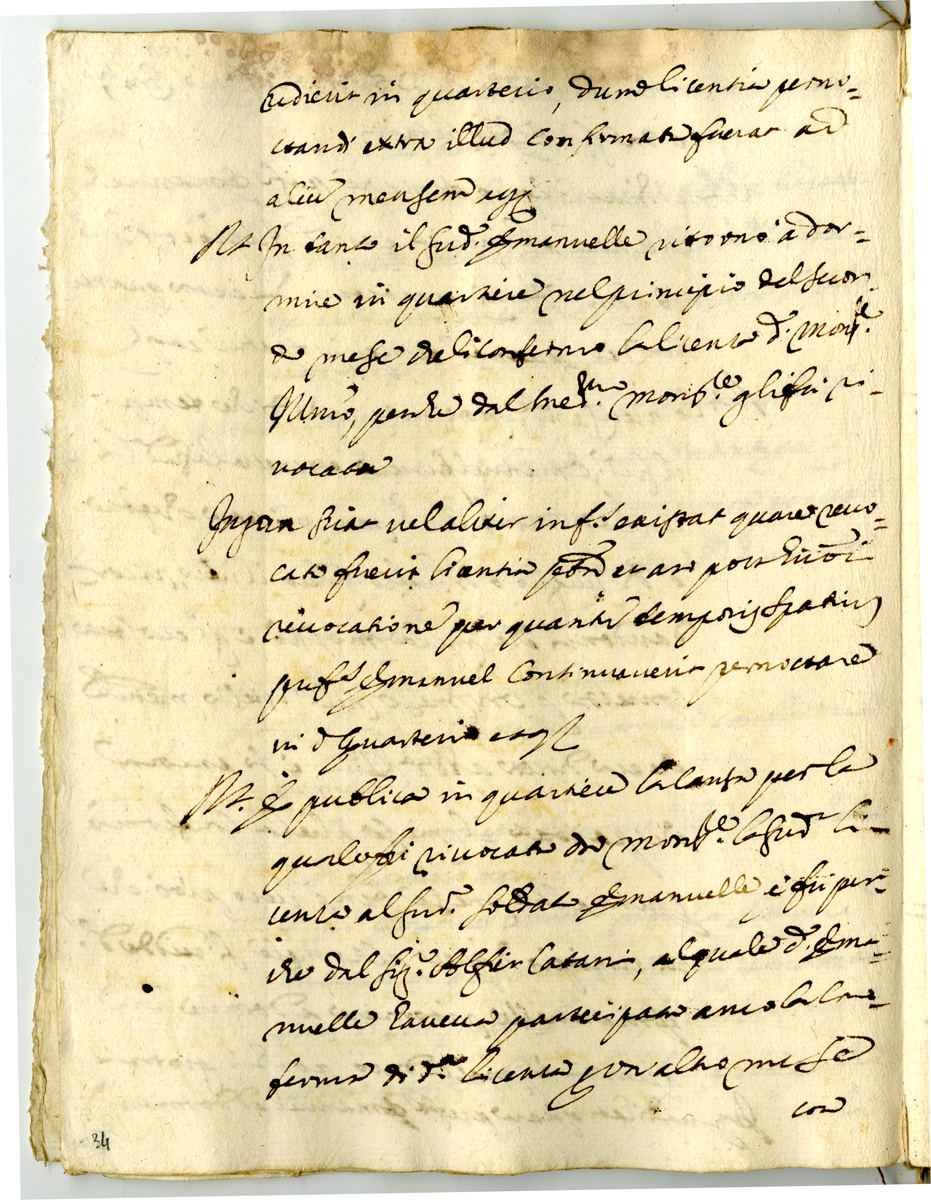 redierit in quarterio, dum licentia perno=
ctandi extra illud confirmata fuerat ad
aliu mensem
Rt In tanto il sud. Emanuelle ritornò a dor=
mire in quartiere nel principio del secon
do mese che li confermò la licenza d. Mons.re
Ill.mo, perche dal med.mo mons.re gli fu ri=
vocata
Int an sciat vel aliter inf. existat quare revo=
cata fuerit licentia et an post
revocatione per quanti temporis spatiu
pref. Emanuel continuaverit pernoctare
in d quarterio
Rt. È publica in quartiere la causa per la
quale fu rivocata da mons.re la sud.a li=
cenza al sud. soldato Emanuelle e fu per=
che dal sig. Alfier Catani, al quale d. Ema=
nuelle haveva participato anco la con=
ferma di d.a licenza per un altro mese
con
34